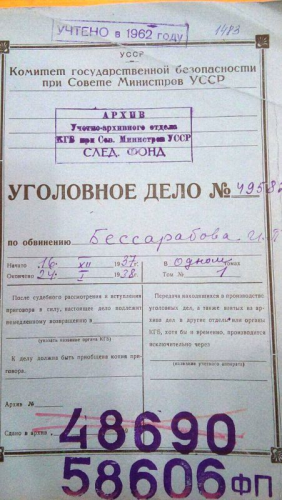 УЧТЕНО в 1962 году
1483
УССР
Комитет государственной безопасности
при Совете Министров УССР
АРХИВ
Учетно-архивного отдела
КГБ при Сов. Министров УССР
СЛЕД. ФОНД
УГОЛОВНОЕ ДЕЛО № 49582
по обвинению Бессарабова
Начато 16 XII 1937 г.
Окончено 24 I 1938 г.
В одном томах
Том № 1
После судебного рассмотрения и вступления
приговора в силу, настоящее дело подлежит
немедленному возвращению в
(указать название органа КГБ)
К делу должна быть приобщена копия при-
говора.
Передача находившихся в производстве
уголовных дел, а также взятых из архива
дел в другие отделы или органы
КГБ, хотя бы и временно, производится
исключительно через
(наименование учетного аппарата)
Архив №
Сдано в архив
48690
58606 ФП